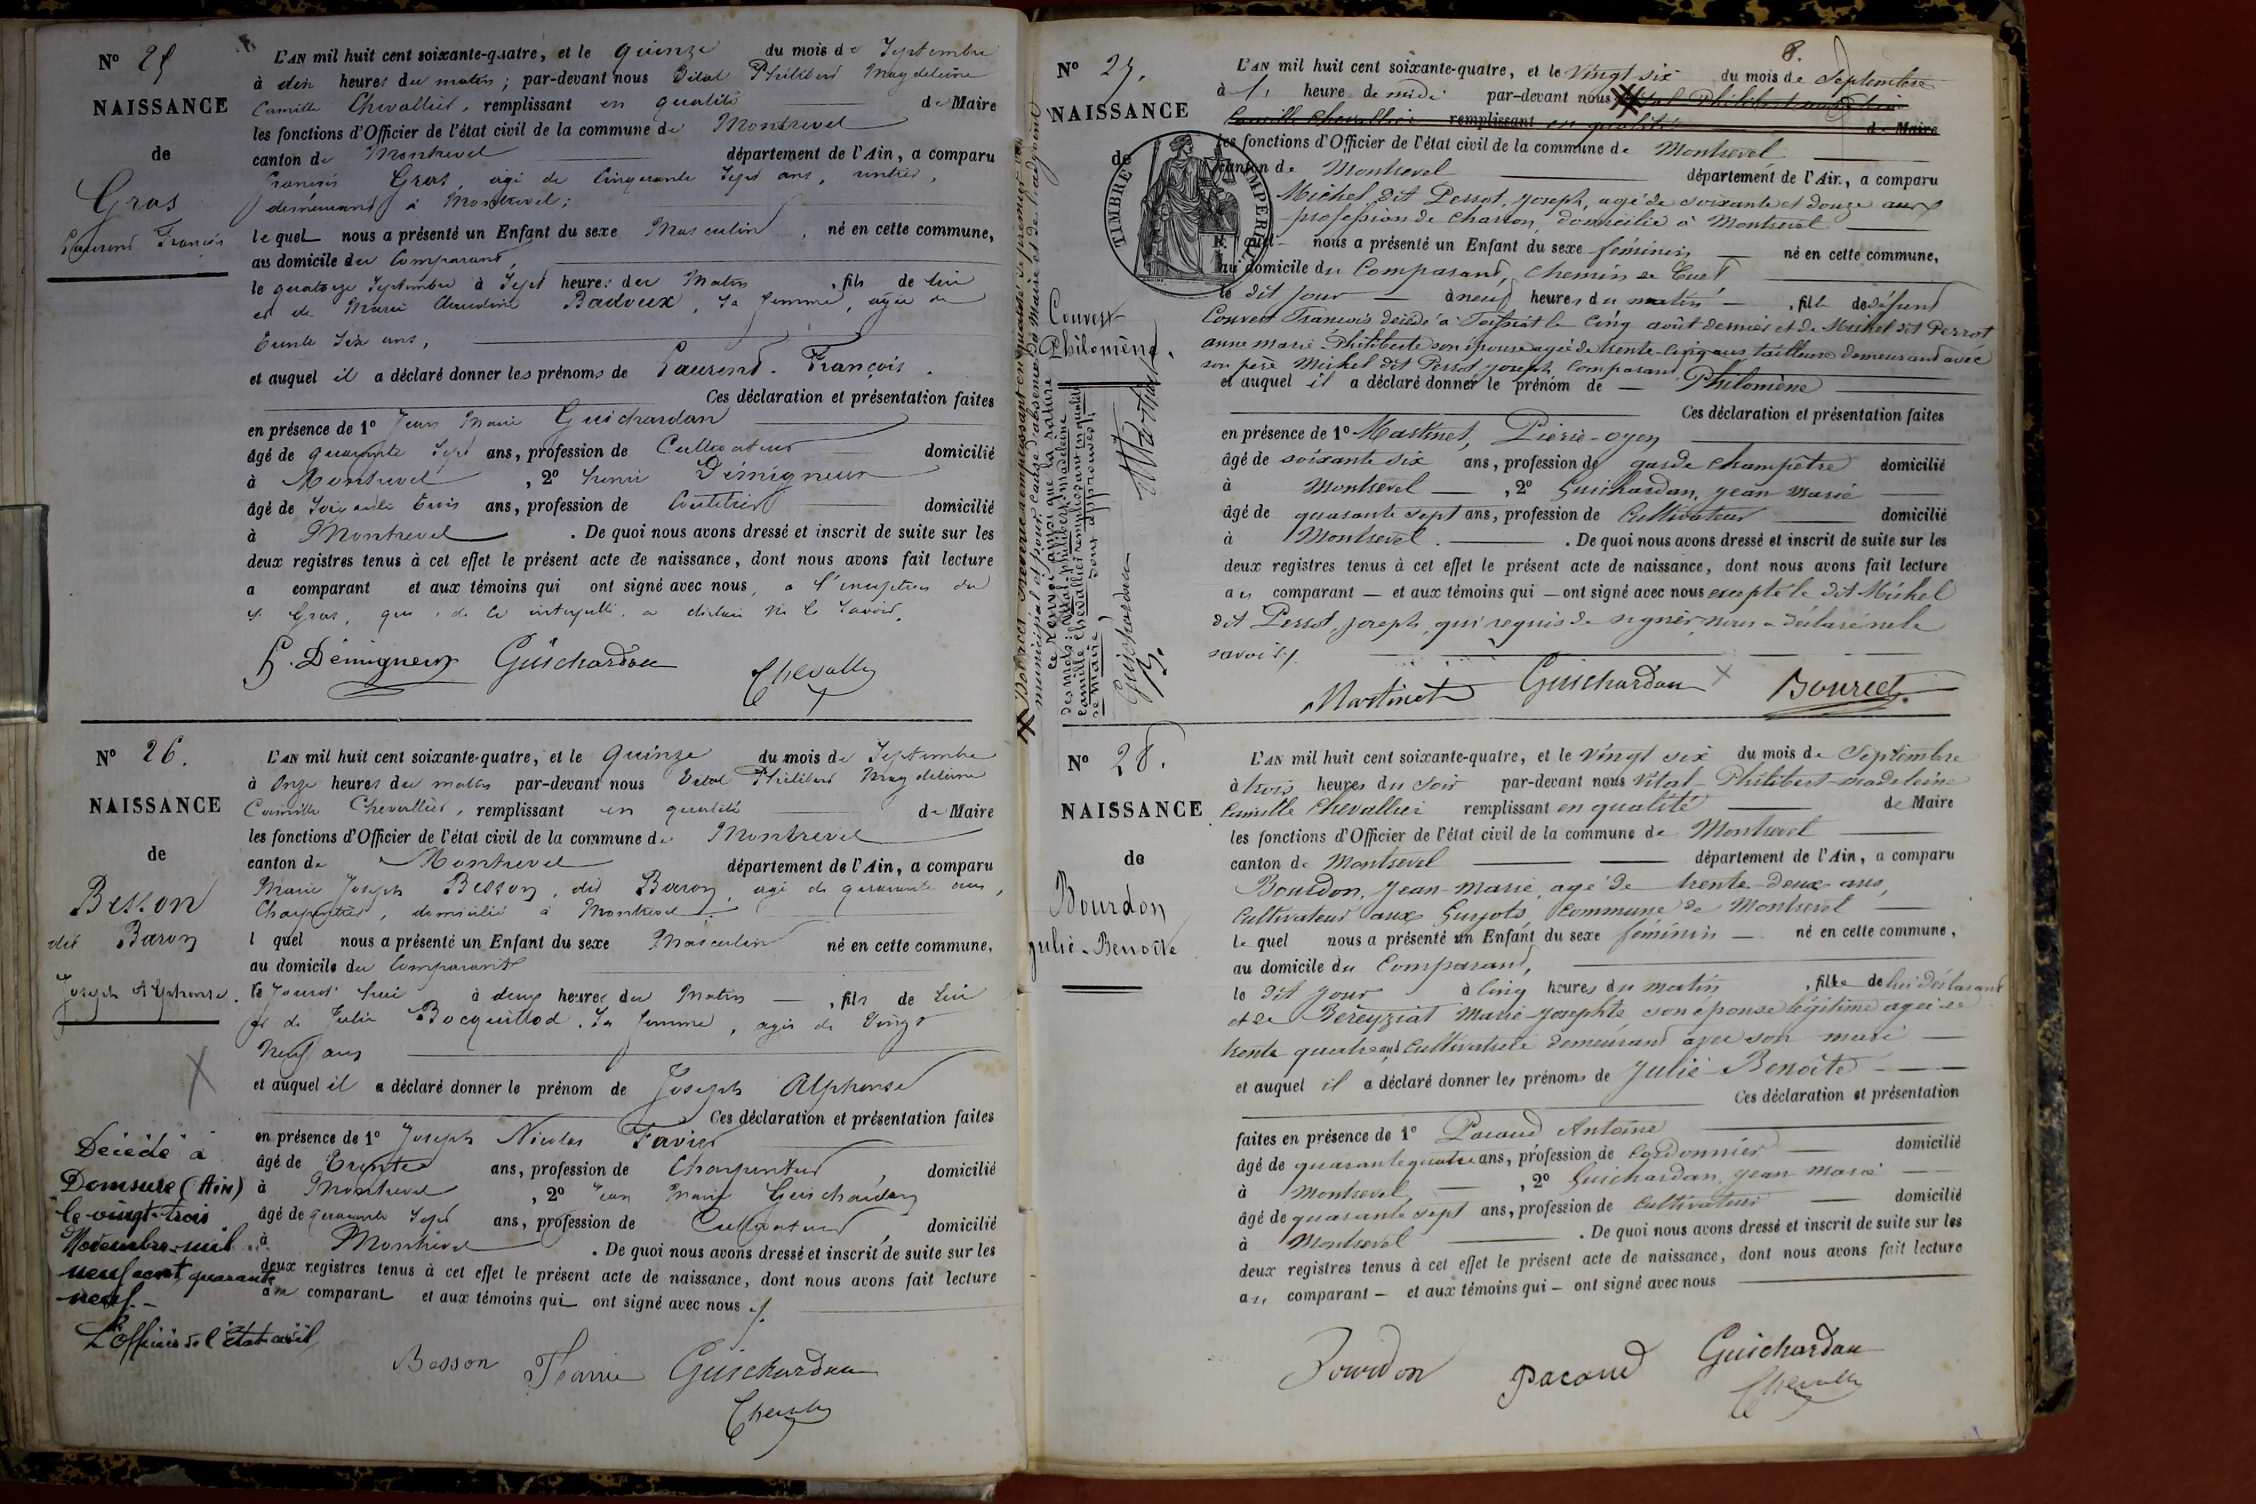 N° 25
NAISSANCE
de
Gras
Laurent François
L'AN mil huit cent soixante-quatre, et le quinze du mois de Septembre
à dix heures du matin; par-devant nous Vital Philibert Magdeleine
Camille Chevallier, remplissant en qualité de Maire
les fonctions d'Officier de l'état civil de la commune de Montrevel
canton de Montrevel département de l'Ain, a comparu
François Gras, agé de Cinquante Sept ans, rentier,
demeurant à Montrevel;
lequel nous a présenté un Enfant du sexe Masculin, né en cette commune,
au domicile du Comparant,
le quatorze Septembre à Sept heures du Matin, fils de lui
et de Marie Claudine Badoux, Sa femme, agée de
trente Six ans,
et auquel il a déclaré donner les prénoms de Laurent François.
Ces déclaration et présentation faites
en présence de 1° Jean Marie Guichardan
âgé de quarante Sept ans, profession de Cultivateur domicilié
à Montrevel, 2° Demigneux
âgé de Soixante trois ans, profession de domicilié
à Montrevel. De quoi nous avons dressé et inscrit de suite sur les
deux registres tenus à cet effet le présent acte de naissance, dont nous avons fait lecture
a comparant et aux témoins qui ont signé avec nous, à l'exception du
Sr Gras, qui, de ce interpellé, a déclaré ne le Savoir.
Demigneux Guichardan Chevallier
N° 26.
NAISSANCE
de
Besson
dit Baron
Joseph Alphonse.
Décédé à
Domsure (Ain)
le vingt-trois
Novembre mil
neuf cent quarante
neuf.-
L'officier de l'état civil
L'AN mil huit cent soixante-quatre, et le quinze du mois de Septembre
à Onze heures du matin par-devant nous Vital Philibert Magdeleine
Camille Chevallier, remplissant en qualité de Maire
les fonctions d'Officier de l'état civil de la commune de Montrevel
canton de Montrevel département de l'Ain, a comparu
Marie Joseph Besson, dit Baron, agé de quarante ans,
Charpentier, domicilié à Montrevel
l quel nous a présenté un Enfant du sexe Masculin né en cette commune,
au domicile du Comparant
le Jourd'hui à deux heures du Matin, fils de Lui
et de Julie Bocquillod, Sa femme, agée de Vingt
Neuf ans
et auquel il a déclaré donner le prénom de Joseph Alphonse
Ces déclaration et présentation faites
en présence de 1° Joseph Nicolas Favier
âgé de trente ans, profession de Charpentier, domicilié
à Montrevel, 2° Jean Marie Guichardan
âgé de quarante Sept ans, profession de Cultivateur, domicilié
à Montrevel. De quoi nous avons dressé et inscrit de suite sur les
deux registres tenus à cet effet le présent acte de naissance, dont nous avons fait lecture
au comparant et aux témoins qui ont signé avec nous
Besson Favier Guichardan
Chevallier
8.
N° 27.
NAISSANCE
de
TIMBRE IMPERIAL
Couvert
Philomène.
L'AN mil huit cent soixante-quatre, et le vingt six du mois de Septembre
à heure de midi par-devant nous Vital Philibert Magdeleine
Camille Chevallier remplissant en qualité de Maire
les fonctions d'Officier de l'état civil de la commune de Montrevel
canton de Montrevel département de l'Ain, a comparu
Michel dit Perrot, Joseph, agé de soixante et douze ans
profession de charron, domicilié à Montrevel
le quel nous a présenté un Enfant du sexe féminin né en cette commune,
au domicile du Comparant, chemin de Cuet
le dit jour à neuf heures du matin, fille de défunt
Couvert François décédé à le cinq août dernier et de Michel dit Perrot
anne marie Philiberte son épouse agée de trente-cinq ans tailleuse demeurant avec
son père Michel dit Perrot Joseph, Comparant
et auquel il a déclaré donner le prénom de Philomène
Ces déclaration et présentation faites
en présence de 1° Martinet, Pierre-oyen
âgé de soixante six ans, profession de garde champêtre domicilié
à Montrevel, 2° Guichardan, jean marie
âgé de quarante sept ans, profession de Cultivateur domicilié
à Montrevel. De quoi nous avons dressé et inscrit de suite sur les
deux registres tenus à cet effet le présent acte de naissance, dont nous avons fait lecture
au comparant et aux témoins qui ont signé avec nous excepté le dit Michel
dit Perrot, joseph, qui requis de signer nous a déclaré ne le
savoir.
Martinet Guichardan
municipal et pour cause d'absence du Maire et de l'adjoint
ce renvoi ainsi que la rature
des mots: Vital philibert madeleine
camille chevallier remplissant en qualité
de maire, sont approuvés.
Guichardan Martinet
N° 28.
NAISSANCE
de
Bourdon
julie-Benoite
L'AN mil huit cent soixante-quatre, et le vingt six du mois de Septembre
à trois heures du soir par-devant nous Vital-Philibert-madeleine
Camille Chevallier remplissant en qualité de Maire
les fonctions d'Officier de l'état civil de la commune de Montrevel
canton de Montrevel département de l'Ain, a comparu
Bourdon, Jean-marie, agé de trente-deux ans,
cultivateur aux Guyots, commune de Montrevel
le quel nous a présenté un Enfant du sexe féminin né en cette commune,
au domicile du Comparant,
le dit jour à cinq heures du matin, fille de lui déclarant
et de Béreyziat Marie-josephte son épouse légitime agée de
trente quatre ans cultivatrice demeurant avec son mari
et auquel il a déclaré donner les prénoms de Julie-Benoite
Ces déclaration et présentation
faites en présence de 1° Pacoud Antoine
âgé de quarante quatre ans, profession de Cordonnier domicilié
à Montrevel, 2° Guichardan, jean marie
âgé de quarante sept ans, profession de Cultivateur domicilié
à Montrevel. De quoi nous avons dressé et inscrit de suite sur les
deux registres tenus à cet effet le présent acte de naissance, dont nous avons fait lecture
au comparant et aux témoins qui ont signé avec nous
Bourdon Pacoud Guichardan
Chevallier